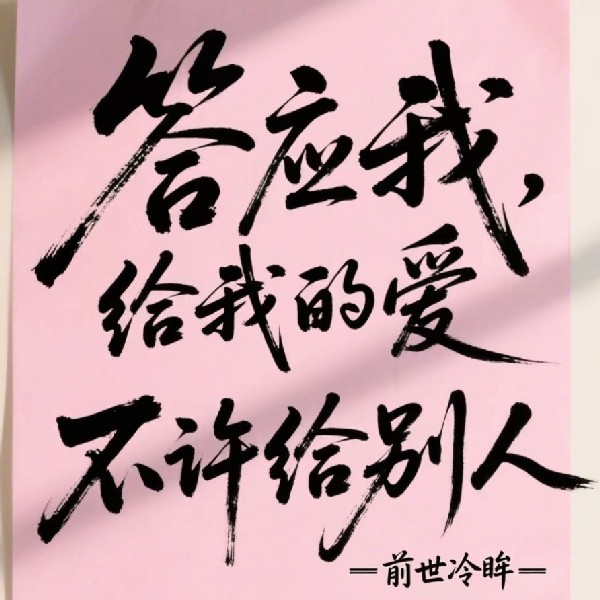 答应我，
给我的爱
不许给别人
—前世冷眸—